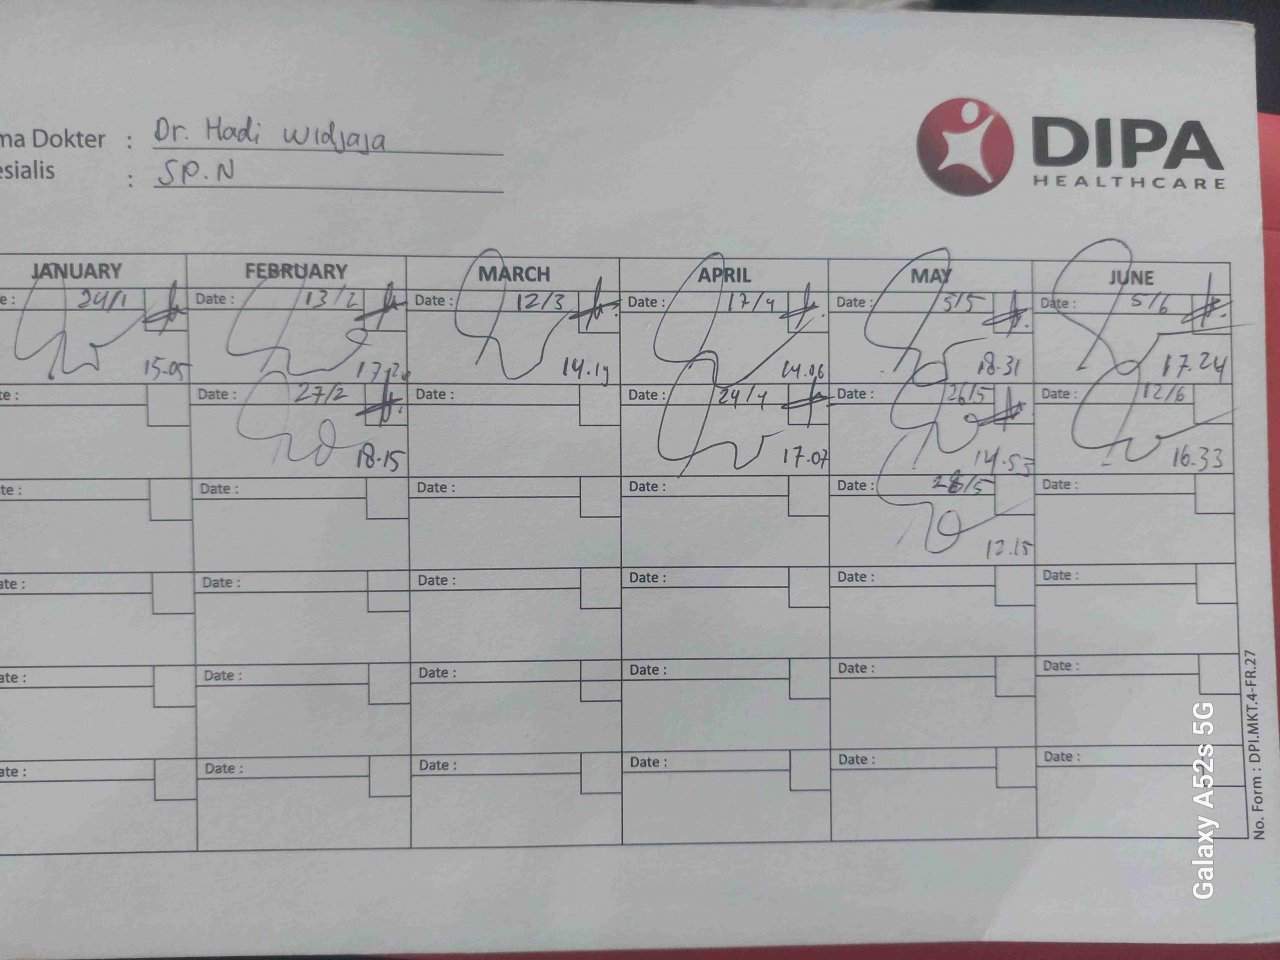 ma Dokter : Dr. Hadi Widjaja
esialis : SP.N
DIPA
HEALTHCARE
JANUARY FEBRUARY MARCH APRIL MAY JUNE
e : 24/1 Date : 13/2 Date : 12/3 Date : 17/4 Date : 5/5 Date : 5/6
15.05 14.19 14.06 18.31 17.24
te : Date : 27/2 Date : Date : 24/4 Date : 26/5 Date : 12/6
18.15 17.07 14.53 16.33
te : Date : Date : Date : Date : 28/5 Date :
12.15
ate : Date : Date : Date : Date : Date :
ate : Date : Date : Date : Date : Date :
ate : Date : Date : Date : Date : Date :
No. Form : DPI.MKT.4-FR.27
Galaxy A52s 5G